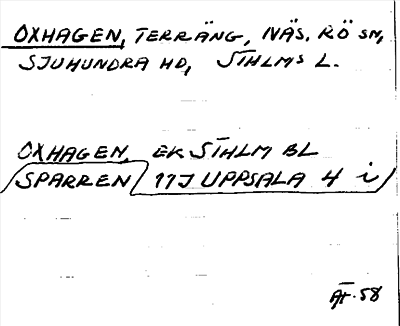 OXHAGEN, TERRÄNG, IVÄS, RÖ SN,
SJUHUNDRA HD, STHLMS L.
OXHAGEN, EK STHLM BL
SPARREN 11J UPPSALA 4 i
ÅF.58